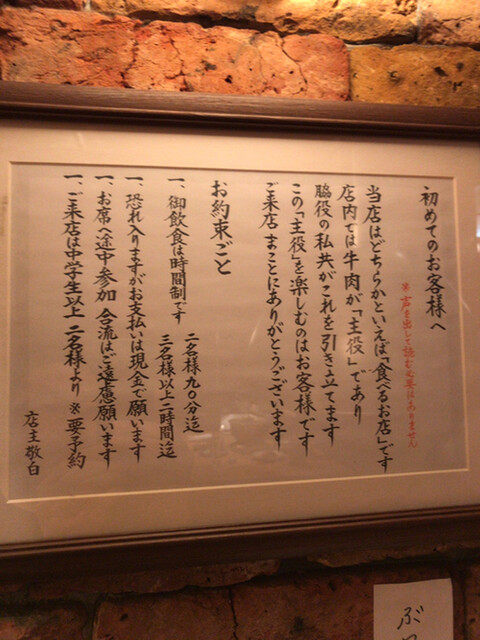 初めてのお客様へ
※声を出して読む必要はありません
当店はどちらかといえば「食べるお店」です
店内では牛肉が「主役」であり
脇役の私共がこれを引き立てます
この「主役」を楽しむのはお客様です
ご来店 まことにありがとうございます
お約束ごと
一、御飲食は時間制です 二名様九〇分迄
三名様以上二時間迄
一、恐れ入りますがお支払いは現金で願います
一、お席へ途中参加 合流はご遠慮願います
一、ご来店は中学生以上 二名様より ※要予約
店主敬白
ぶ